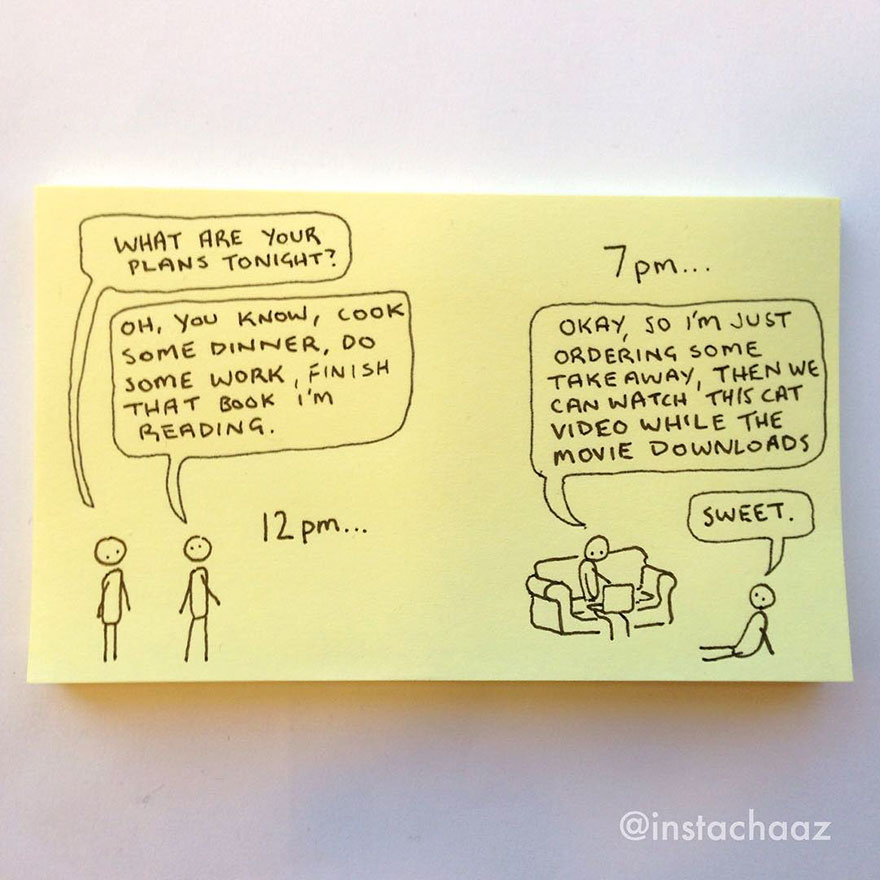 WHAT ARE YOUR
PLANS TONIGHT?
OH, YOU KNOW, COOK
SOME DINNER, DO
SOME WORK, FINISH
THAT BOOK I'M
READING.
12 pm...
7 pm...
OKAY, SO I'M JUST
ORDERING SOME
TAKEAWAY, THEN WE
CAN WATCH THIS CAT
VIDEO WHILE THE
MOVIE DOWNLOADS
SWEET.
@instachaaz